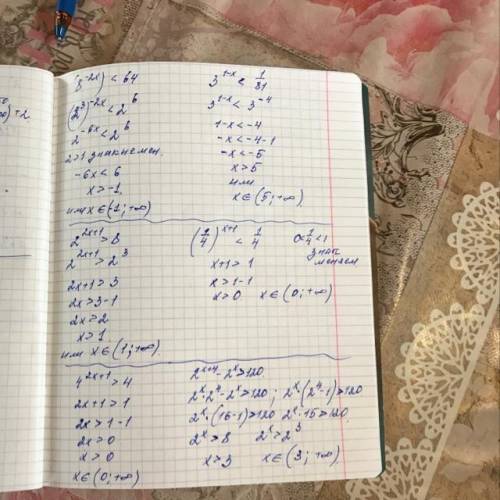 8^{-2x}) < 64
(2^3)^{-2x} < 2^6
2^{-6x} < 2^6
2>1 знак не мен.
-6x < 6
x > -1
или x ∈ (1; +∞)
3^{1-x} < 1/81
3^{1-x} < 3^{-4}
1-x < -4
-x < -4-1
-x < -5
x > 5
или
x ∈ (5; +∞)
2^{2x+1} > 8
2^{2x+1} > 2^3
2x+1 > 3
2x > 3-1
2x > 2
x > 1
или x ∈ (1; +∞)
(1/4)^{x+1} < 1/4
0<1/4<1
знак
меняем
x+1 > 1
x > 1-1
x > 0 x ∈ (0; +∞)
4^{2x+1} > 4
2x+1 > 1
2x > 1-1
2x > 0
x > 0
x ∈ (0; +∞)
2^{x+4} - 2^x > 120
2^x · 2^4 - 2^x > 120 ; 2^x · (2^4 - 1) > 120
2^x · (16-1) > 120 2^x · 15 > 120
2^x > 8 2^x > 2^3
x > 3 x ∈ (3; +∞)